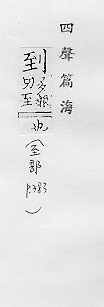 四聲篇海
到
多報
切至
也
(至部
P.383)